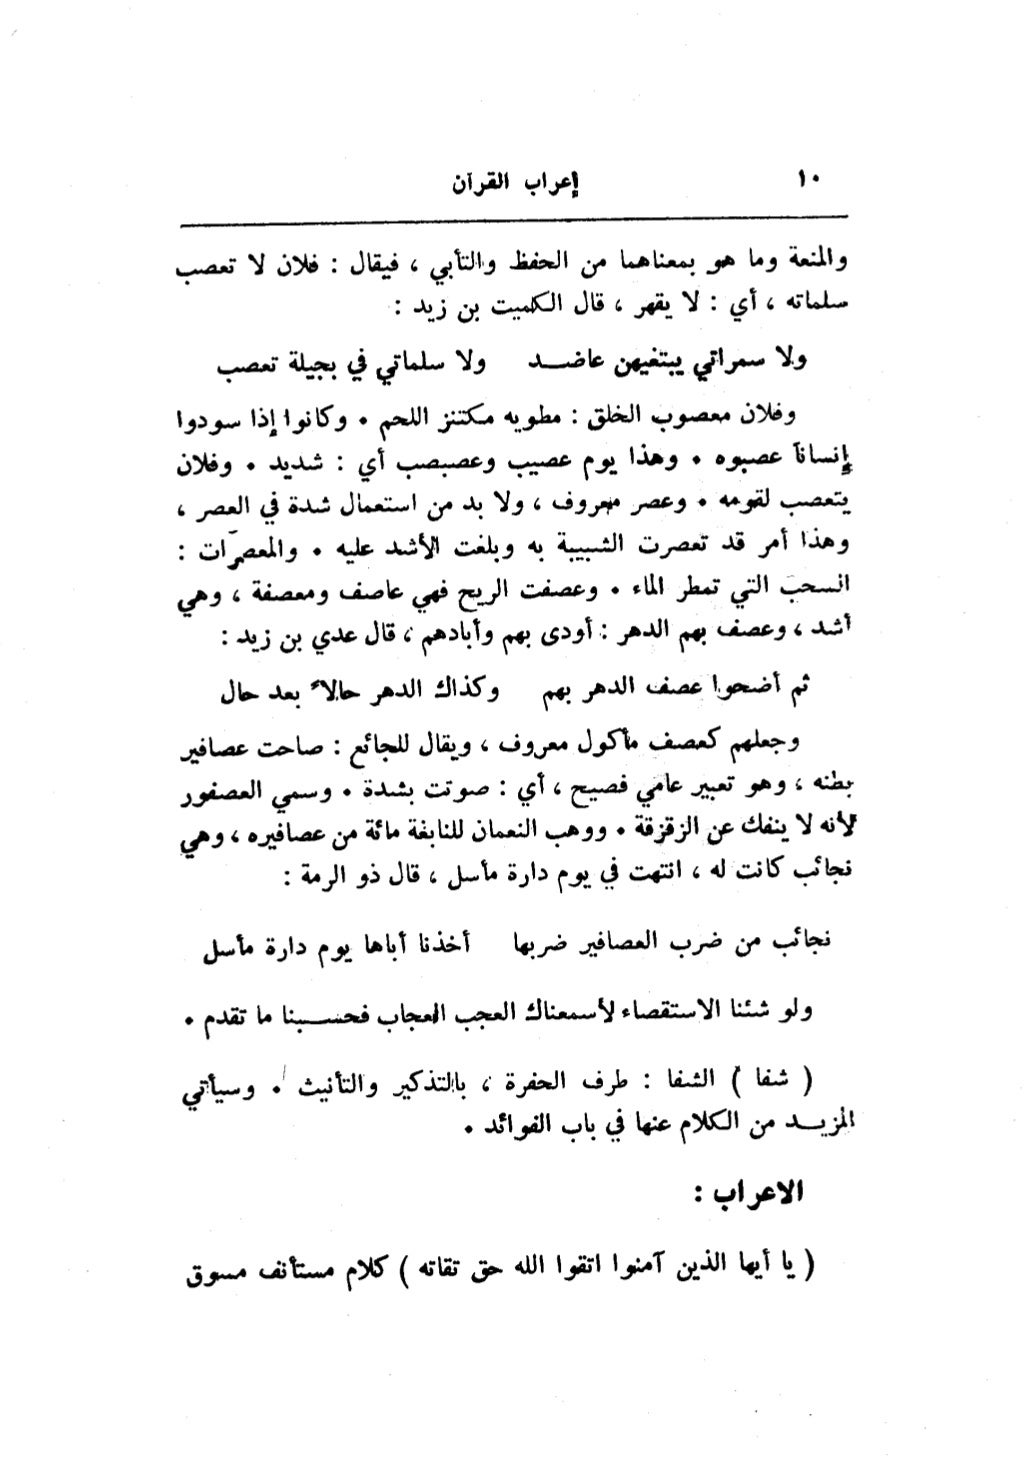 ١٠ إعراب القرآن
والمنعة وما هو بمعناهما من الحفظ والتأبي ، فيقال : فلان لا تعصب
سلماته ، أي : لا يقهر ، قال الكميت بن زيد :
ولا سمراتي يبتغيهن عاضـــد ولا سلماتي في بجيلة تعصب
وفلان معصوب الخلق : مطويه مكتنز اللحم . وكانوا إذا سودوا
إنساناً عصبوه . وهذا يوم عصيب وعصبصب أي : شديد . وفلان
يتعصب لقومه . وعصر معروف ، ولا بد من استعمال شدة في العصر ،
وهذا أمر قد تعصرت الشبيبة به وبلغت الأشد عليه . والمعصرَات :
السحبَ التي تمطر الماء . وعصفت الريح فهي عاصف ومعصفة ، وهي
أشد ، وعصف بهم الدهر : أودى بهم وأبادهم ، قال عدي بن زيد :
ثم أضحوا عصف الدهر بهم وكذاك الدهر حالاً بعد حال
وجعلهم كعصف مأكول معروف ، ويقال للجائع : صاحت عصافير
بطنه ، وهو تعبير عامي فصيح ، أي : صوتت بشدة . وسمي العصفور
لأنه لا ينفك عن الزقزقة . ووهب النعمان للنابغة مائة من عصافيره ، وهي
نجائب كانت له ، انتهت في يوم دارة مأسل ، قال ذو الرمة :
نجائب من ضرب العصافير ضربها أخذنا أباها يوم دارة مأسل
ولو شئنا الاستقصاء لأسمعناك العجب العجاب فحســـبنا ما تقدم .
( شفا ) الشفا : طرف الحفرة ، بالتذكير والتأنيث . وسيأتي
المزيـــد من الكلام عنها في باب الفوائد .
الاعراب :
( يا أيها الذين آمنوا اتقوا الله حق تقاته ) كلام مستأنف مسوق